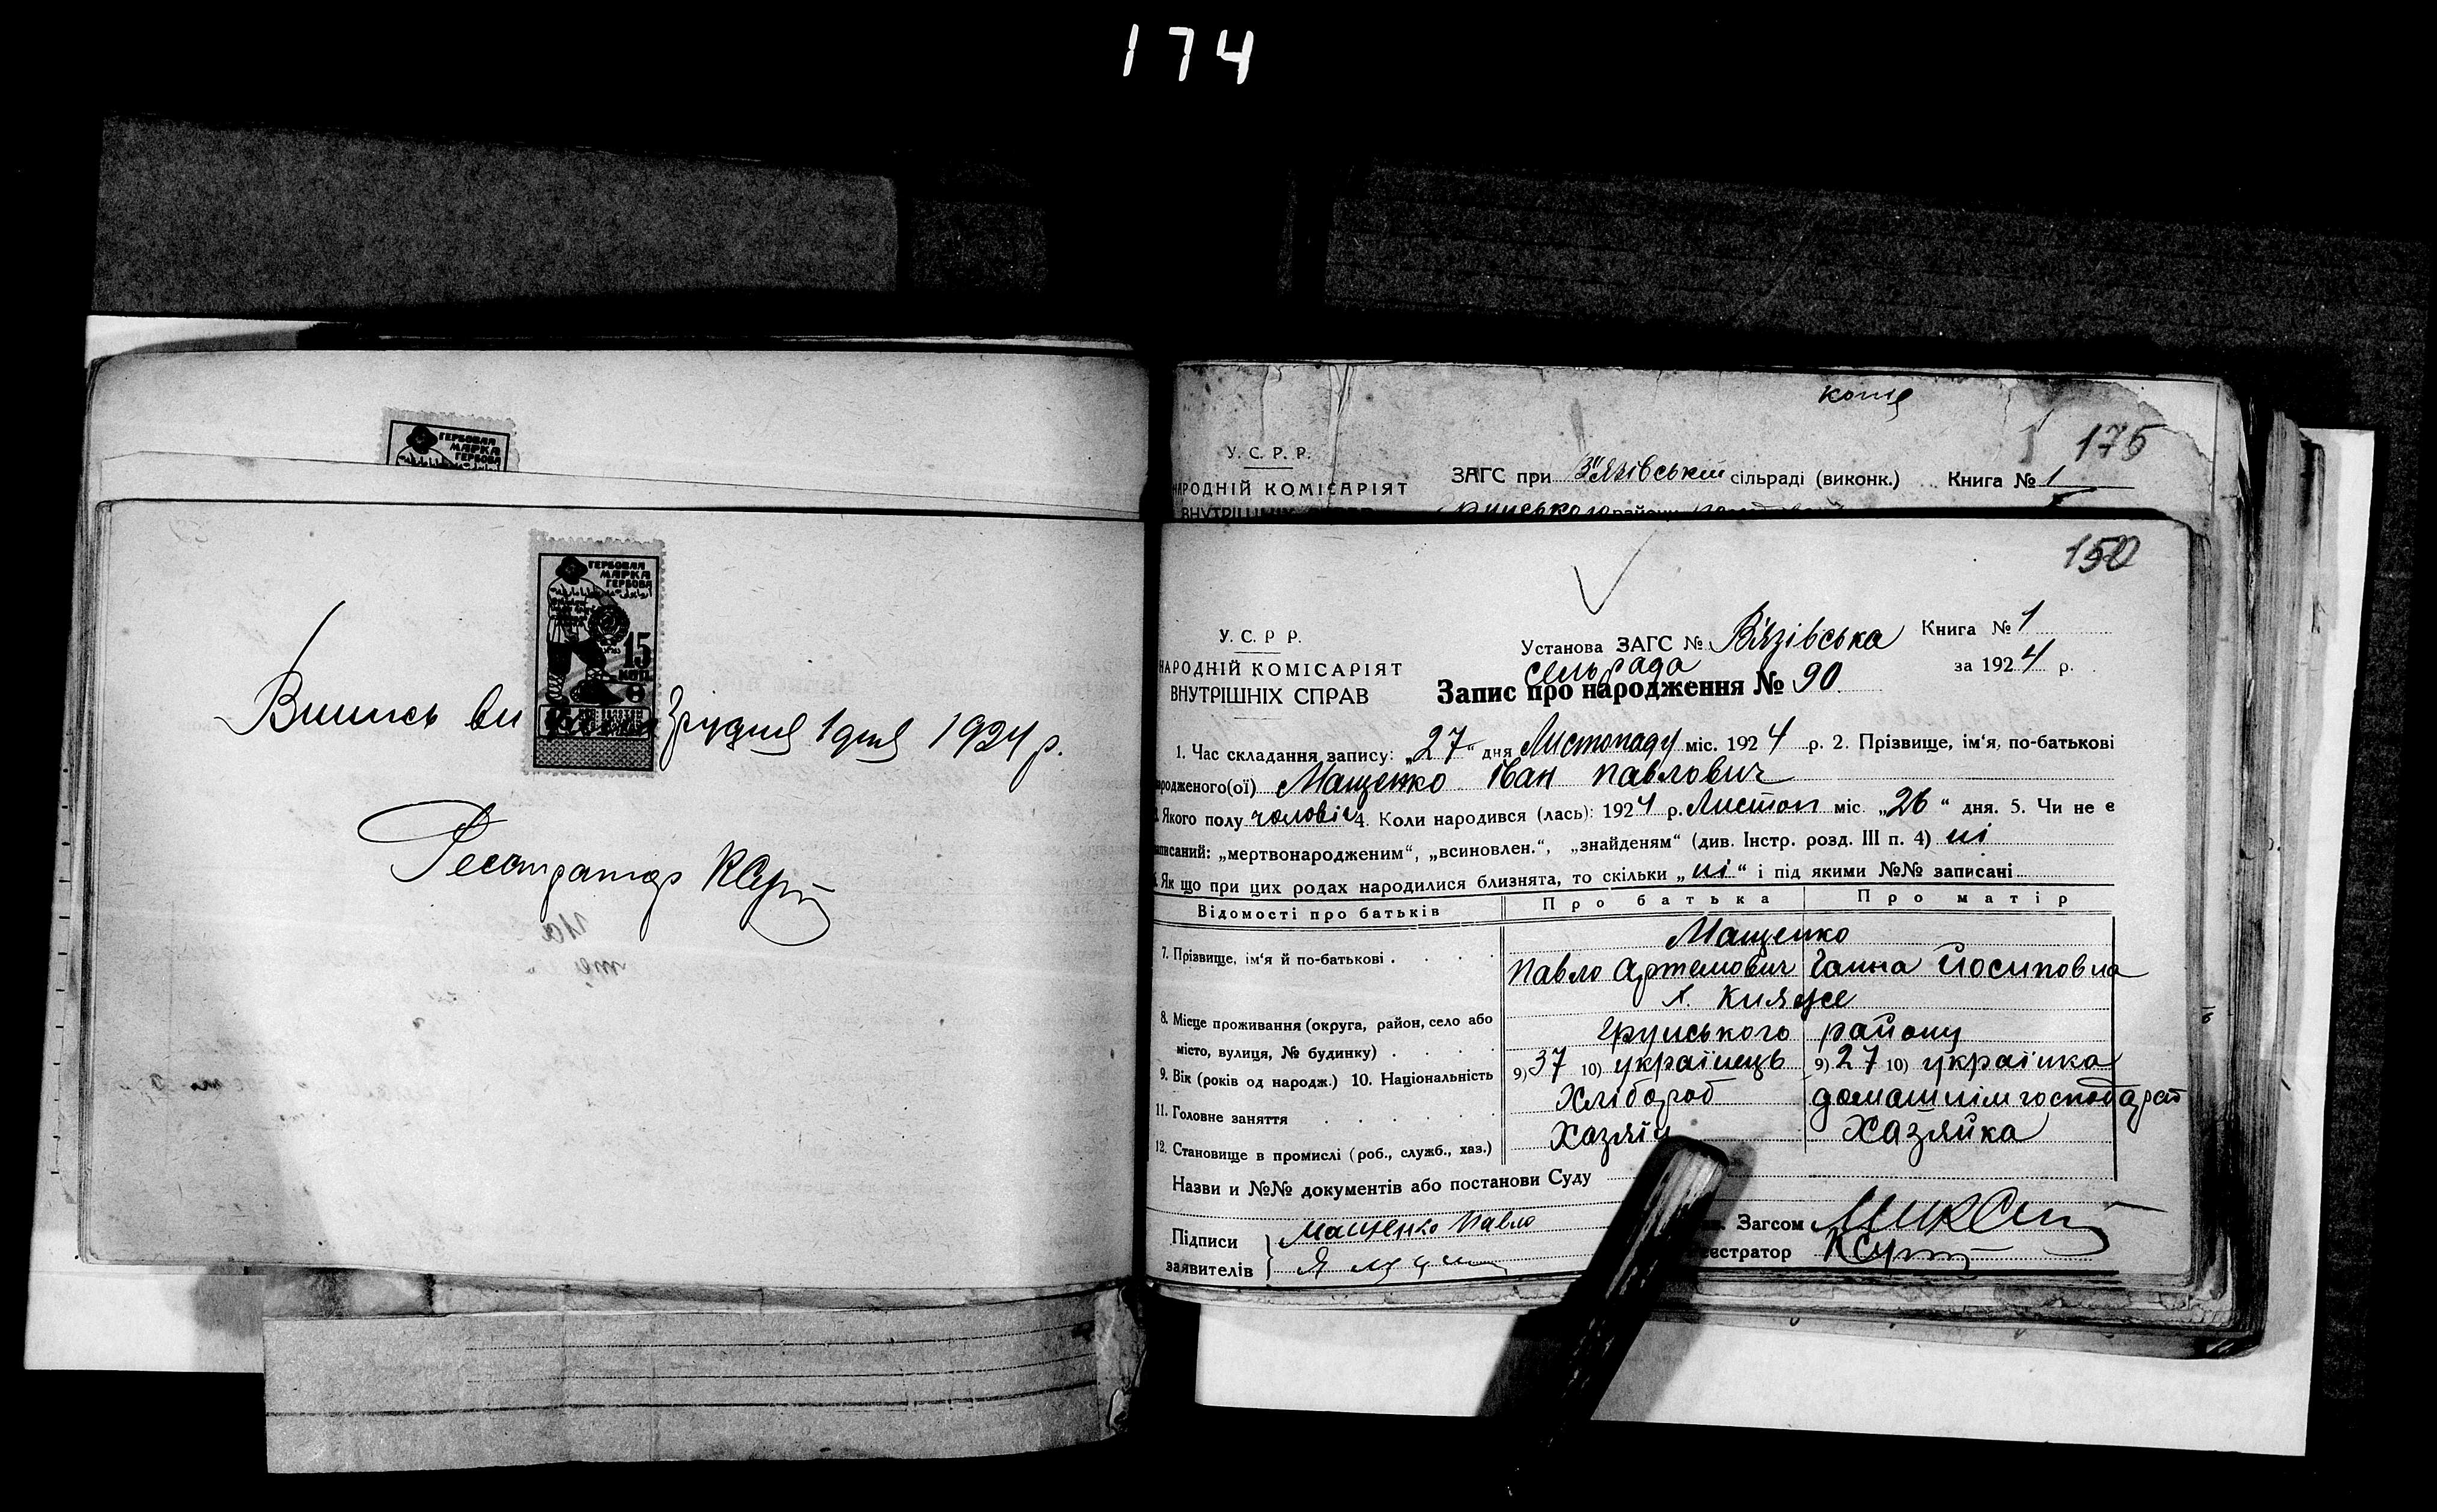 174
ГЕРБОВАЯ
МАРКА
ГЕРБОВА
ГЕРБОВАЯ
МАРКА
ГЕРБОВА
15
КОП.
Випись ви грудня 1 дня 1924 р.
копія
175
У. С. Р. Р.
НАРОДНІЙ КОМІСАРІЯТ
ВНУТРІШНІХ СПРАВ
ЗАГС при В'язівській сільраді (виконк.) Книга № 1
150
У. С. Р Р.
НАРОДНІЙ КОМІСАРІЯТ
ВНУТРІШНІХ СПРАВ
Установа ЗАГС № В'язівська Книга № 1
сельрада за 1924 р.
Запис про народження № 90
1. Час складання запису: „27“ дня Листопаду міс. 1924 р. 2. Прізвище, ім'я, по-батькові
родженого(ої) Мащенко Іван Павлович
Якого полу чоловіч 4. Коли народився (лась): 1924 р. Листоп міс. „26“ дня. 5. Чи не є
записаний: „мертвонародженим“, „всиновлен.“, „знайденям“ (див. Інстр. розд. III п. 4) ні
Як що при цих родах народилися близнята, то скільки „ні“ і під якими №№ записані
Відомості про батьків Про батька Про матір
7. Прізвище, ім'я й по-батькові Мащенко
Павло Артемович Ганна Йосиповна
х. Княже
8. Місце проживання (округа, район, село або
місто, вулиця, № будинку) Грунського району
9. Вік (років од народж.) 10. Національність 9) 37 10) українець 9) 27 10) українка
11. Головне заняття Хлібороб домашнім господарст
12. Становище в промислі (роб., служб., хаз.) Хазяїн Хазяйка
Назви и №№ документів або постанови Суду
Підписи
заявителів
Мащенко Павло
Загсом
еєстратор